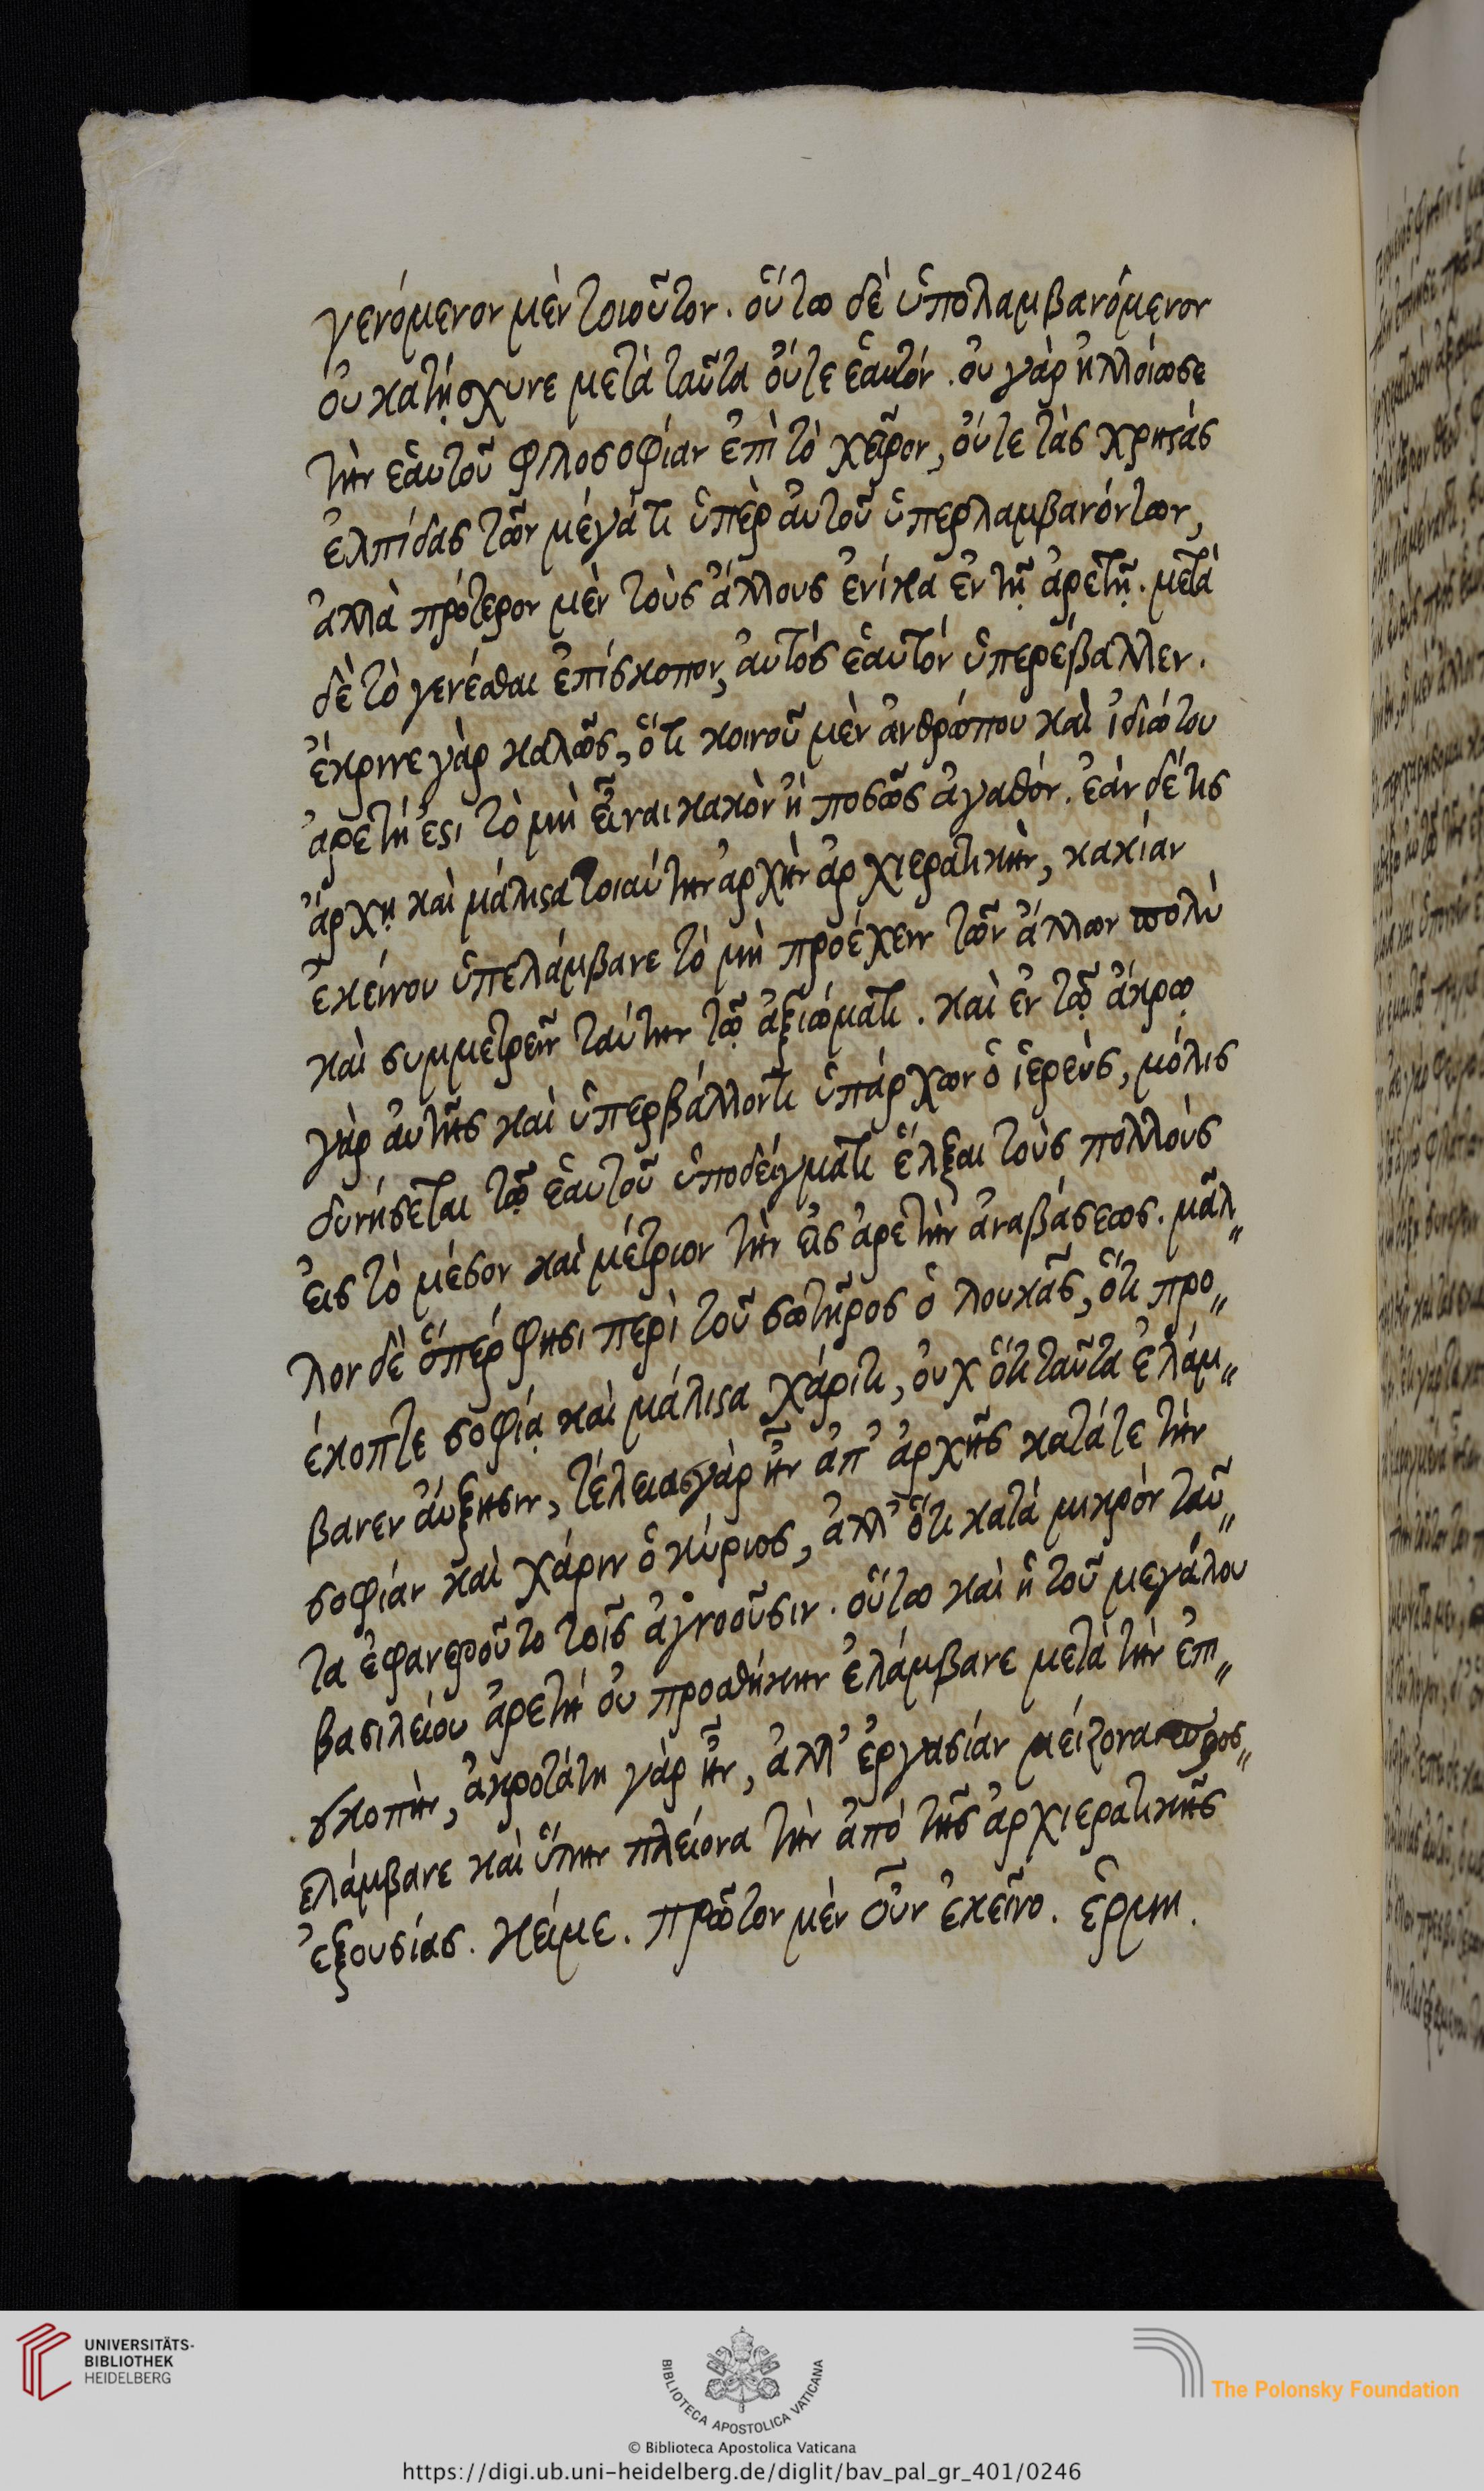 γενόμενον μὲν τοιοῦτον. οὕτω δὲ ὑπολαμβανόμενον
οὐ κατῄσχυνε μετὰ ταῦτα οὔτε ἑαυτόν. οὐ γὰρ ἠλλοίωσε
τὴν ἑαυτοῦ φιλοσοφίαν ἐπὶ τὸ χεῖρον, οὔτε τὰς χρηστὰς
ἐλπίδας τῶν μέγά τι ὑπὲρ αὐτοῦ ὑπερλαμβανόντων,
ἀλλὰ πρότερον μὲν τοὺς ἄλλους ἐνίκα ἐν τῇ ἀρετῇ. μετὰ
δὲ τὸ γενέσθαι ἐπίσκοπον, αὐτὸς ἑαυτὸν ὑπερέβαλλεν.
ἔκρινε γὰρ καλῶς, ὅτι κοινοῦ μὲν ἀνθρώπου καὶ ἰδιώτου
ἀρετή ἐστι τὸ μὴ εἶναι κακὸν ἢ ποσῶς ἀγαθόν. ἐὰν δέ τις
ἄρχῃ καὶ μάλιστα τοιαύτην ἀρχὴν ἀρχιερατικὴν, κακίαν
ἐκείνου ὑπελάμβανε τὸ μὴ προέχειν τῶν ἄλλων πολὺ
καὶ συμμετρεῖν ταύτην τῷ ἀξιώματι. καὶ ἐν τῷ ἄκρῳ
γὰρ αὐτῆς καὶ ὑπερβάλλοντι ὑπάρχων ὁ ἱερεὺς, μόλις
δυνήσεται τῷ ἑαυτοῦ ὑποδείγματι ἕλξαι τοὺς πολλοὺς
εἰς τὸ μέσον καὶ μέτριον τὴν εἰς ἀρετὴν ἀναβάσεως. μᾶλ„
λον δὲ ὅπέρ φησι περὶ τοῦ σωτῆρος ὁ λουκᾶς, ὅτι προ„
έκοπτε σοφίᾳ καὶ μάλιστα χάριτι, οὐχ ὅτι ταῦτα ἐλάμ„
βανεν αὔξησιν, τέλειας γὰρ ἦν ἀπ' ἀρχῆς κατά τε τὴν
σοφίαν καὶ χάριν ὁ κύριος, ἀλλ' ὅτι κατὰ μικρὸν ταῦ„
τα ἐφανεροῦτο τοῖς ἀγνοοῦσιν. οὕτω καὶ ἡ τοῦ μεγάλου
βασιλείου ἀρετὴ οὐ προσθήκην ἐλάμβανε μετὰ τὴν ἐπι„
σκοπὴν, ἀκροτάτη γὰρ ἦν, ἀλλ' ἐργασίαν μείζονα προσ„
ελάμβανε καὶ ὕλην πλείονα τὴν ἀπὸ τῆς ἀρχιερατικῆς
ἐξουσίας. κείμε. πρῶτον μὲν οὖν ἐκεῖνο. ἑρμη.
UNIVERSITÄTS-
BIBLIOTHEK
HEIDELBERG
BIBLIOTECA APOSTOLICA VATICANA
The Polonsky Foundation
© Biblioteca Apostolica Vaticana
https://digi.ub.uni-heidelberg.de/diglit/bav_pal_gr_401/0246